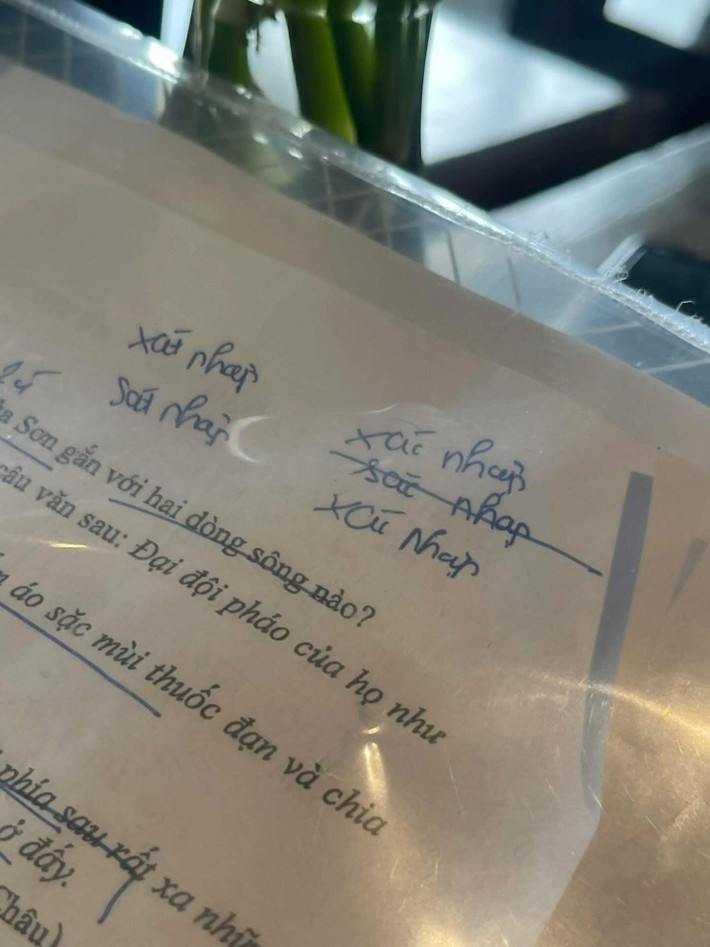 xát nhập
Sát nhập
xác nhập
sác nhập
xác nhập
Sơn gắn với hai dòng sông nào?
câu văn sau: Đại đội pháo của họ như
áo sặc mùi thuốc đạn và chia
phía sau rất xa nhữn
ở đấy.
Châu)